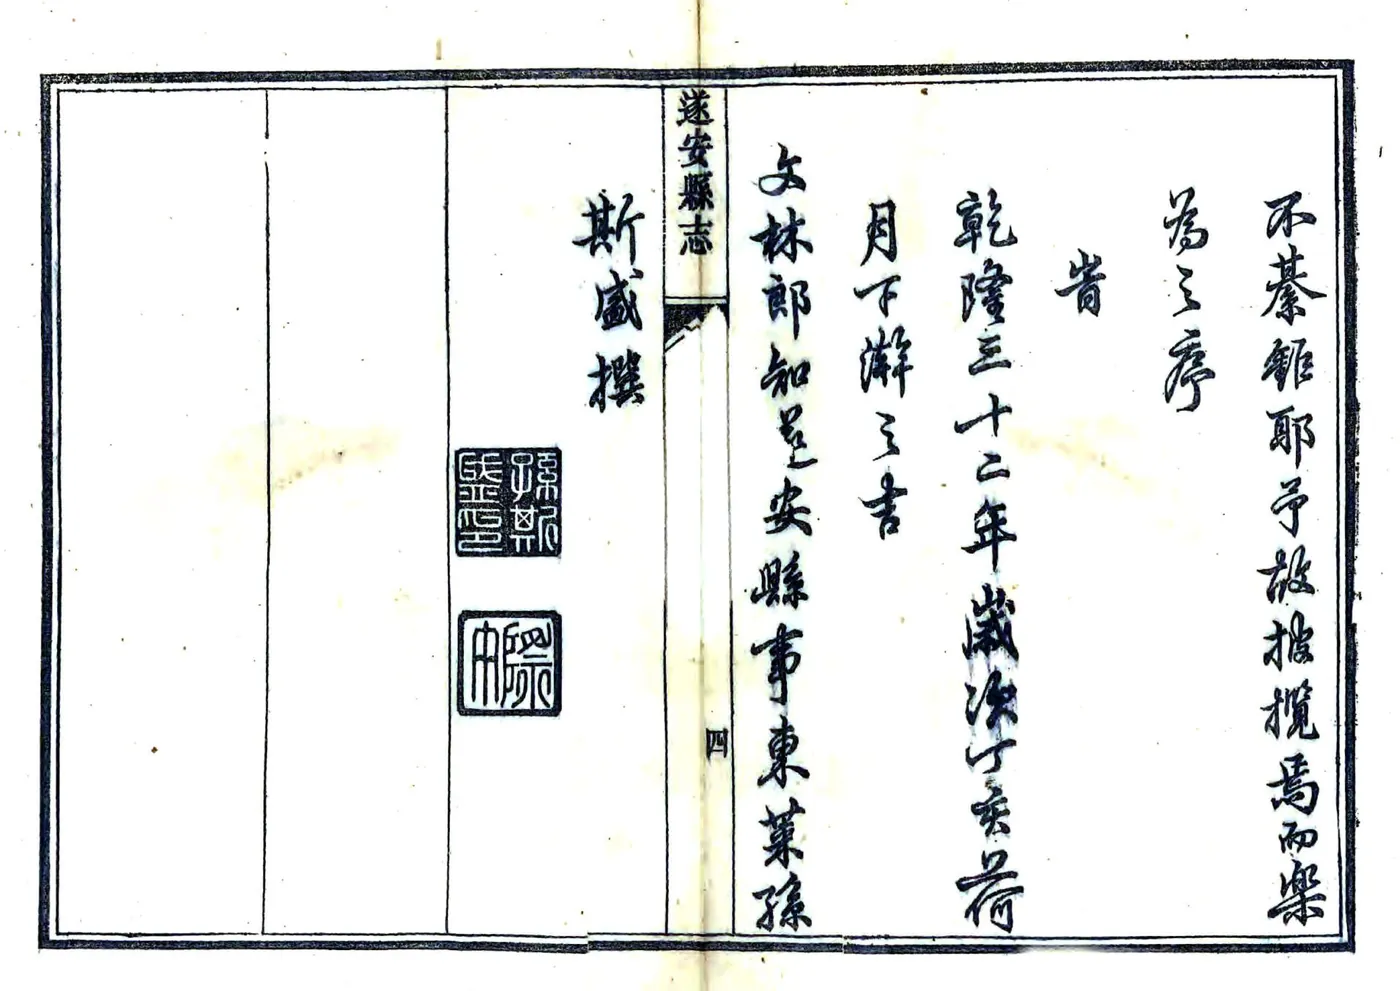 不綦鉅耶予故披攬焉而樂
為之序
旹
乾隆三十二年歲次丁亥荷
月下澣之吉
文林郎知遂安縣事東萊孫
遂安縣志
四
斯盛撰
孫斯
盛印